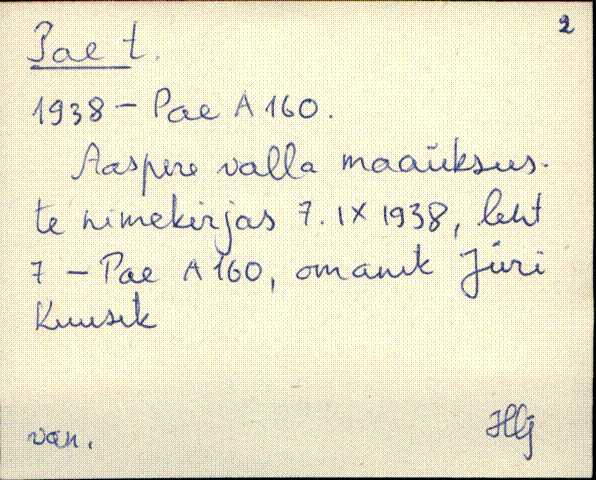 2
Pae t.
1938 - Pae A 160.
Aaspere valla maaüksus-
te nimekirjas 7. IX 1938, leht
7 - Pae A 160, omanik Jüri
Kuusik
van.